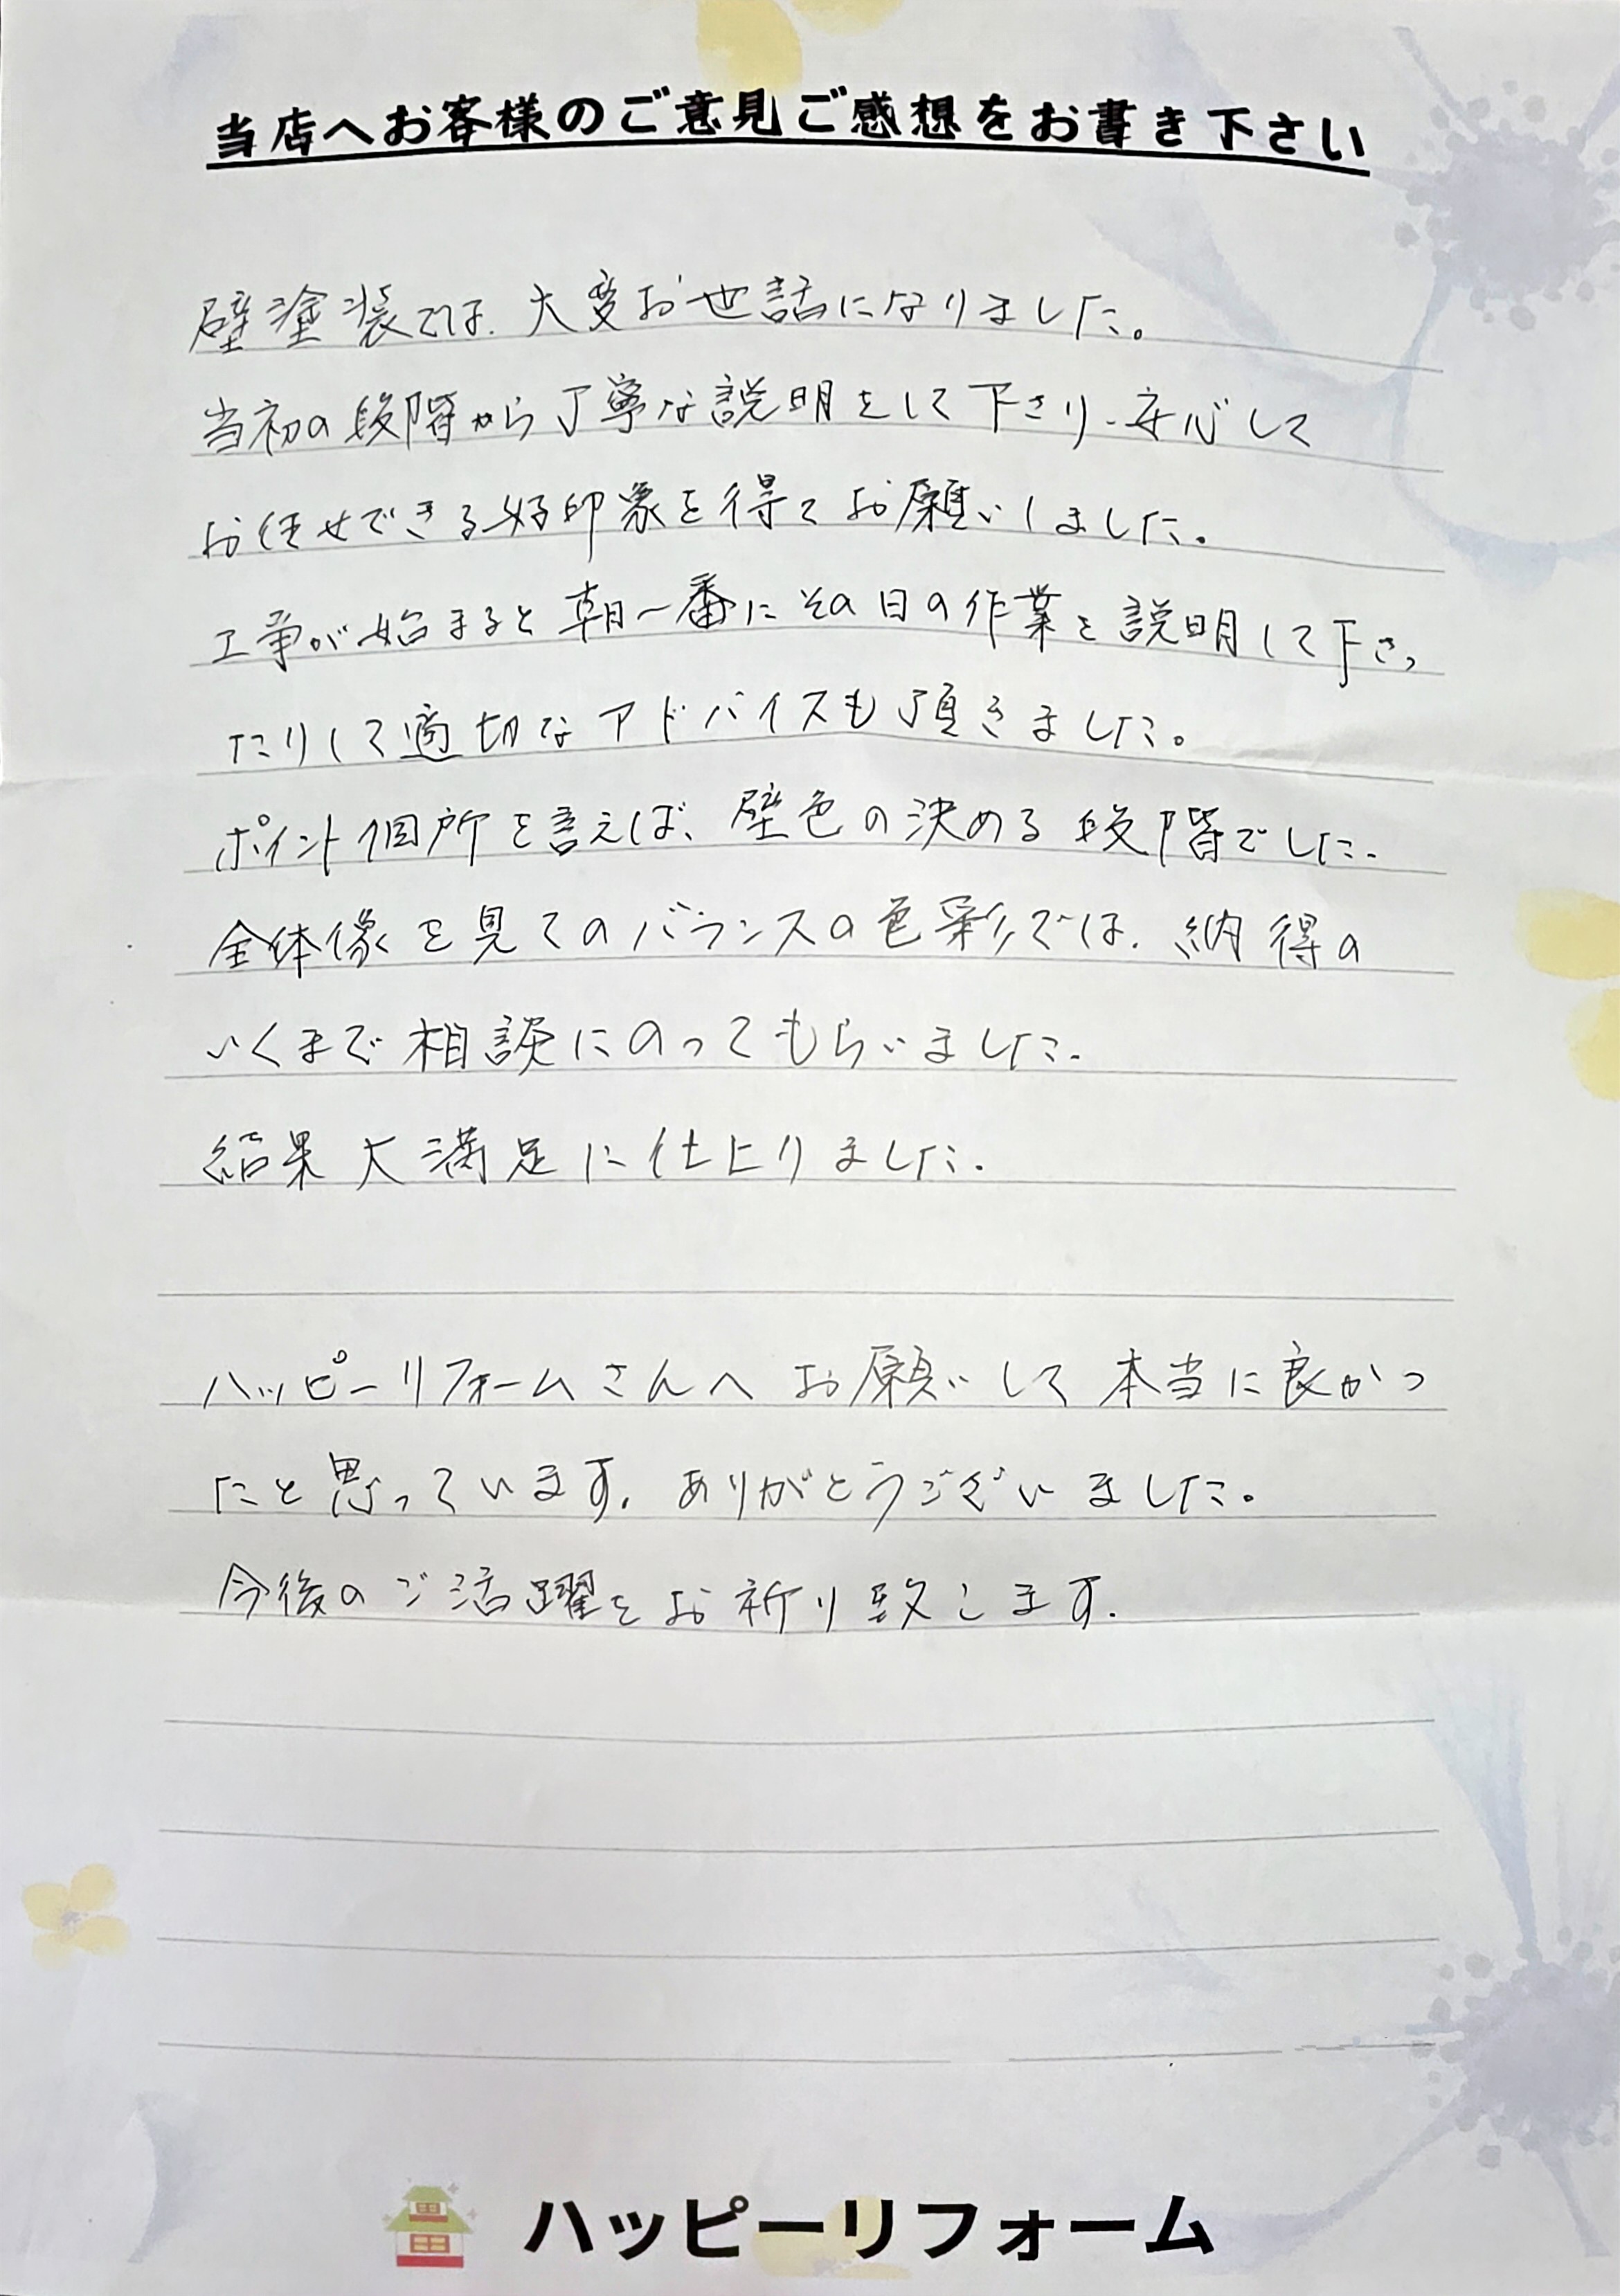 当店へお客様のご意見ご感想をお書き下さい
壁塗装では、大変お世話になりました。
当初の段階から丁寧な説明をして下さり、安心して
お任せできる好印象を得てお願いしました。
工事が始まると朝一番にその日の作業を説明して下さっ
たりして適切なアドバイスも頂きました。
ポイント個所を言えば、壁色の決める段階でした。
全体像を見てのバランスの色彩では、納得の
いくまで相談にのってもらいました。
結果大満足に仕上りました。
ハッピーリフォームさんへお願いして本当に良かっ
たと思っています。ありがとうございました。
今後のご活躍をお祈り致します。
ハッピーリフォーム